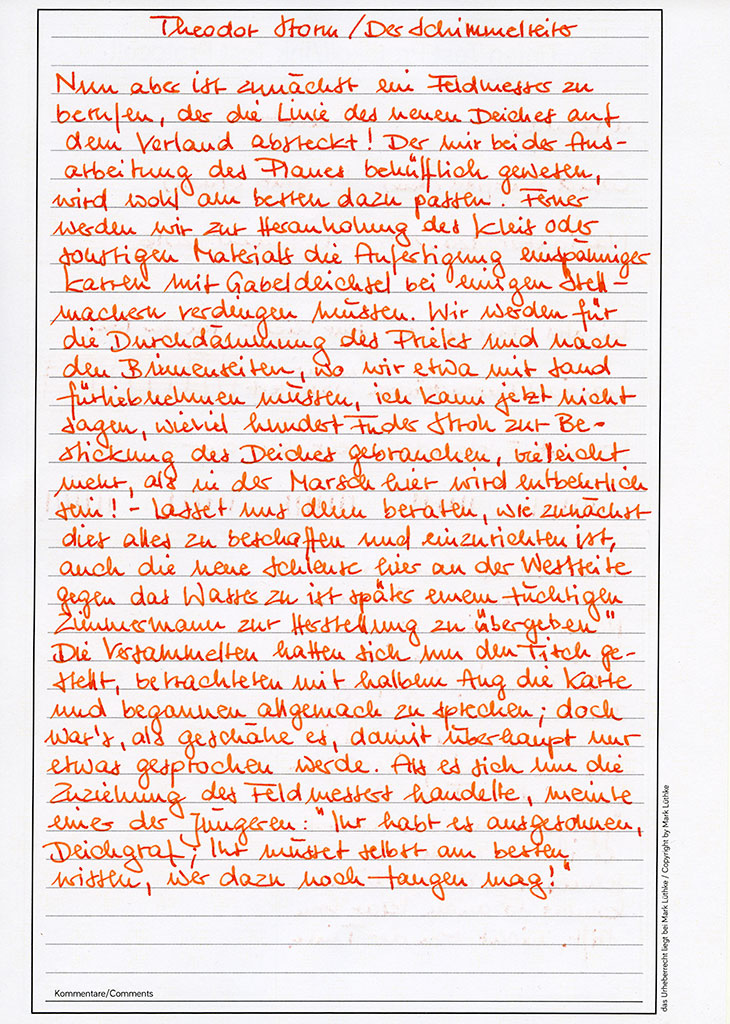 Theodor Storm / Der Schimmelreiter
Nun aber ist zunächst ein Feldmesser zu
berufen, der die Linie des neuen Deiches auf
dem Vorland absteckt! Der mir bei der Aus-
arbeitung des Planes behülflich gewesen,
wird wohl am besten dazu passen. Ferner
werden wir zur Heranholung des Kleis oder
sonstigen Materials die Anfertigung einspänniger
Karren mit Gabeldeichsel bei einigen Stell-
machern verdingen müssen. Wir werden für
die Durchdämmung des Prieles und nach
den Binnenseiten, wo wir etwa mit Sand
fürliebnehmen müssen, ich kann jetzt nicht
sagen, wieviel hundert Fuder Stroh zur Be-
stickung des Deiches gebrauchen, vielleicht
mehr, als in der Marsch hier wird entbehrlich
sein! - Lasset uns denn beraten, wie zunächst
dies alles zu beschaffen und einzurichten ist,
auch die neue Schleuse hier an der Westseite
gegen das Wasser zu ist später einem tüchtigen
Zimmermann zur Herstellung zu übergeben"
Die Versammelten hatten sich um den Tisch ge-
stellt, betrachteten mit halbem Aug die Karte
und begannen allgemach zu sprechen; doch
war's, als geschähe es, damit überhaupt nur
etwas gesprochen werde. Als es sich um die
Zuziehung des Feldmessers handelte, meinte
einer der Jüngeren: "Ihr habt es ausgesonnen,
Deichgraf; Ihr müsset selbst am besten
wissen, wer dazu noch taugen mag!"
Kommentare/Comments
das Urheberrecht liegt bei Mark Lüthke / Copyright by Mark Lüthke